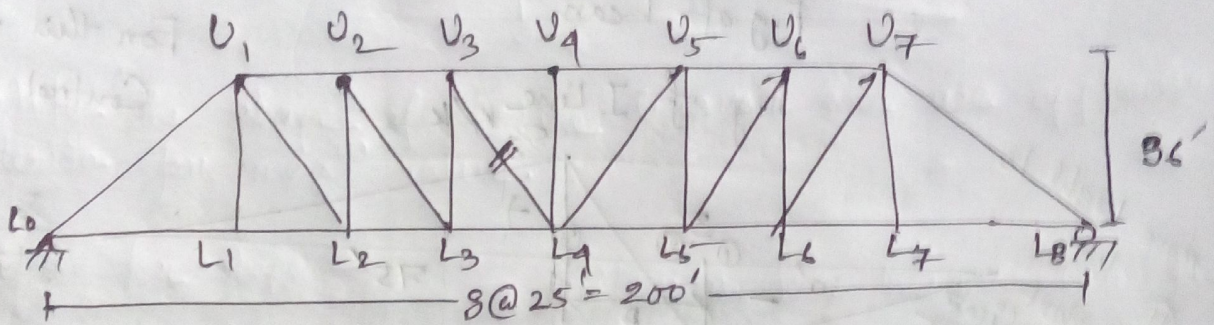 U1 U2 U3 U4 U5 U6 U7
36'
L0 L1 L2 L3 L4 L5 L6 L7 L8
8@25'= 200'